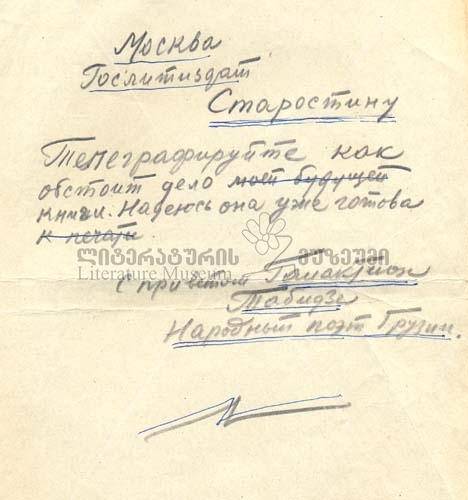 Москва
Гослитиздат
Старостину
Телеграфируйте как
обстоит дело моей будущей
книги. Надеюсь она уже готова
к печати.
ლიტერატურის მუზეუმი
Literature Museum
С приветом Галактион
Табидзе
Народный поэт Грузии.